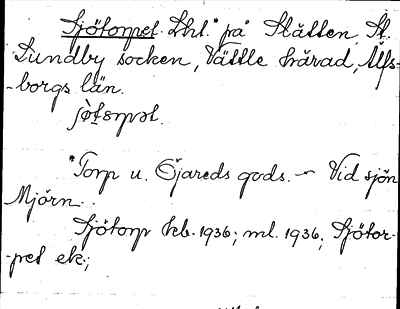 Sjötorpet. Lht.* på Slätten, St.
Lundby socken, Vättle härad, Älfs-
-borgs län.
*Torp u. Öjareds gods. – Vid sjön
Mjörn.
Sjötorp kb. 1936; ml. 1936; Sjötor-
-pet ek.;